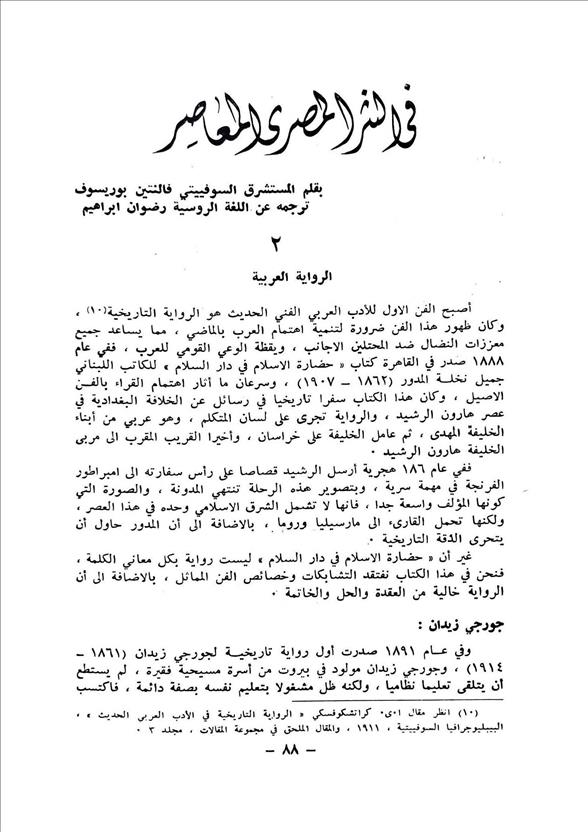 في النثر المصرى المعاصر
بقلم المستشرق السوفييتي فالنتين بوريسوف
ترجمه عن اللغة الروسية رضوان ابراهيم
٢
الرواية العربية
أصبح الفن الاول للأدب العربي الفني الحديث هو الرواية التاريخية(١٠) ،
وكان ظهور هذا الفن ضرورة لتنمية اهتمام العرب بالماضي ، مما يساعد جميع
معززات النضال ضد المحتلين الاجانب ، ويقظة الوعي القومي للعرب ، ففي عام
١٨٨٨ صدر في القاهرة كتاب « حضارة الاسلام في دار السلام » للكاتب اللبناني
جميل نخلة المدور (١٨٦٢ – ١٩٠٧) ، وسرعان ما أثار اهتمام القراء بالفن
الاصيل ، وكان هذا الكتاب سفرا تاريخيا في رسائل عن الخلافة البغدادية في
عصر هارون الرشيد ، والرواية تجرى على لسان المتكلم ، وهو عربي من أبناء
الخليفة المهدى ، ثم عامل الخليفة على خراسان ، وأخيرا القريب المقرب الى مربى
الخليفة هارون الرشيد ٠
ففي عام ١٨٦ هجرية أرسل الرشيد قصاصا على رأس سفارته الى امبراطور
الفرنجة في مهمة سرية ، وبتصوير هذه الرحلة تنتهي المدونة ، والصورة التي
كونها المؤلف واسعة جدا ، فانها لا تشمل الشرق الاسلامي وحده في هذا العصر ،
ولكنها تحمل القارىء الى مارسيليا وروما ، بالاضافة الى أن المدور حاول أن
يتحرى الدقة التاريخية ٠
غير أن « حضارة الاسلام في دار السلام » ليست رواية بكل معاني الكلمة ،
فنحن في هذا الكتاب نفتقد التشابكات وخصائص الفن المماثل ، بالاضافة الى أن
الرواية خالية من العقدة والحل والخاتمة ٠
جورجي زيدان :
وفي عام ١٨٩١ صدرت أول رواية تاريخية لجورجي زيدان (١٨٦١ –
١٩١٤) ، وجورجي زيدان مولود في بيروت من أسرة مسيحية فقيرة ، لم يستطع
أن يتلقى تعليما نظاميا ، ولكنه ظل مشغولا بتعليم نفسه بصفة دائمة ، فاكتسب
(١٠) انظر مقال ا٠ى٠ كراتشكوفسكي « الرواية التاريخية في الأدب العربى الحديث » ،
الببليوجرافيا السوفييتية ، ١٩١١ ، والمقال الملحق في مجموعة المقالات ، مجلد ٣ ٠
– ٨٨ –